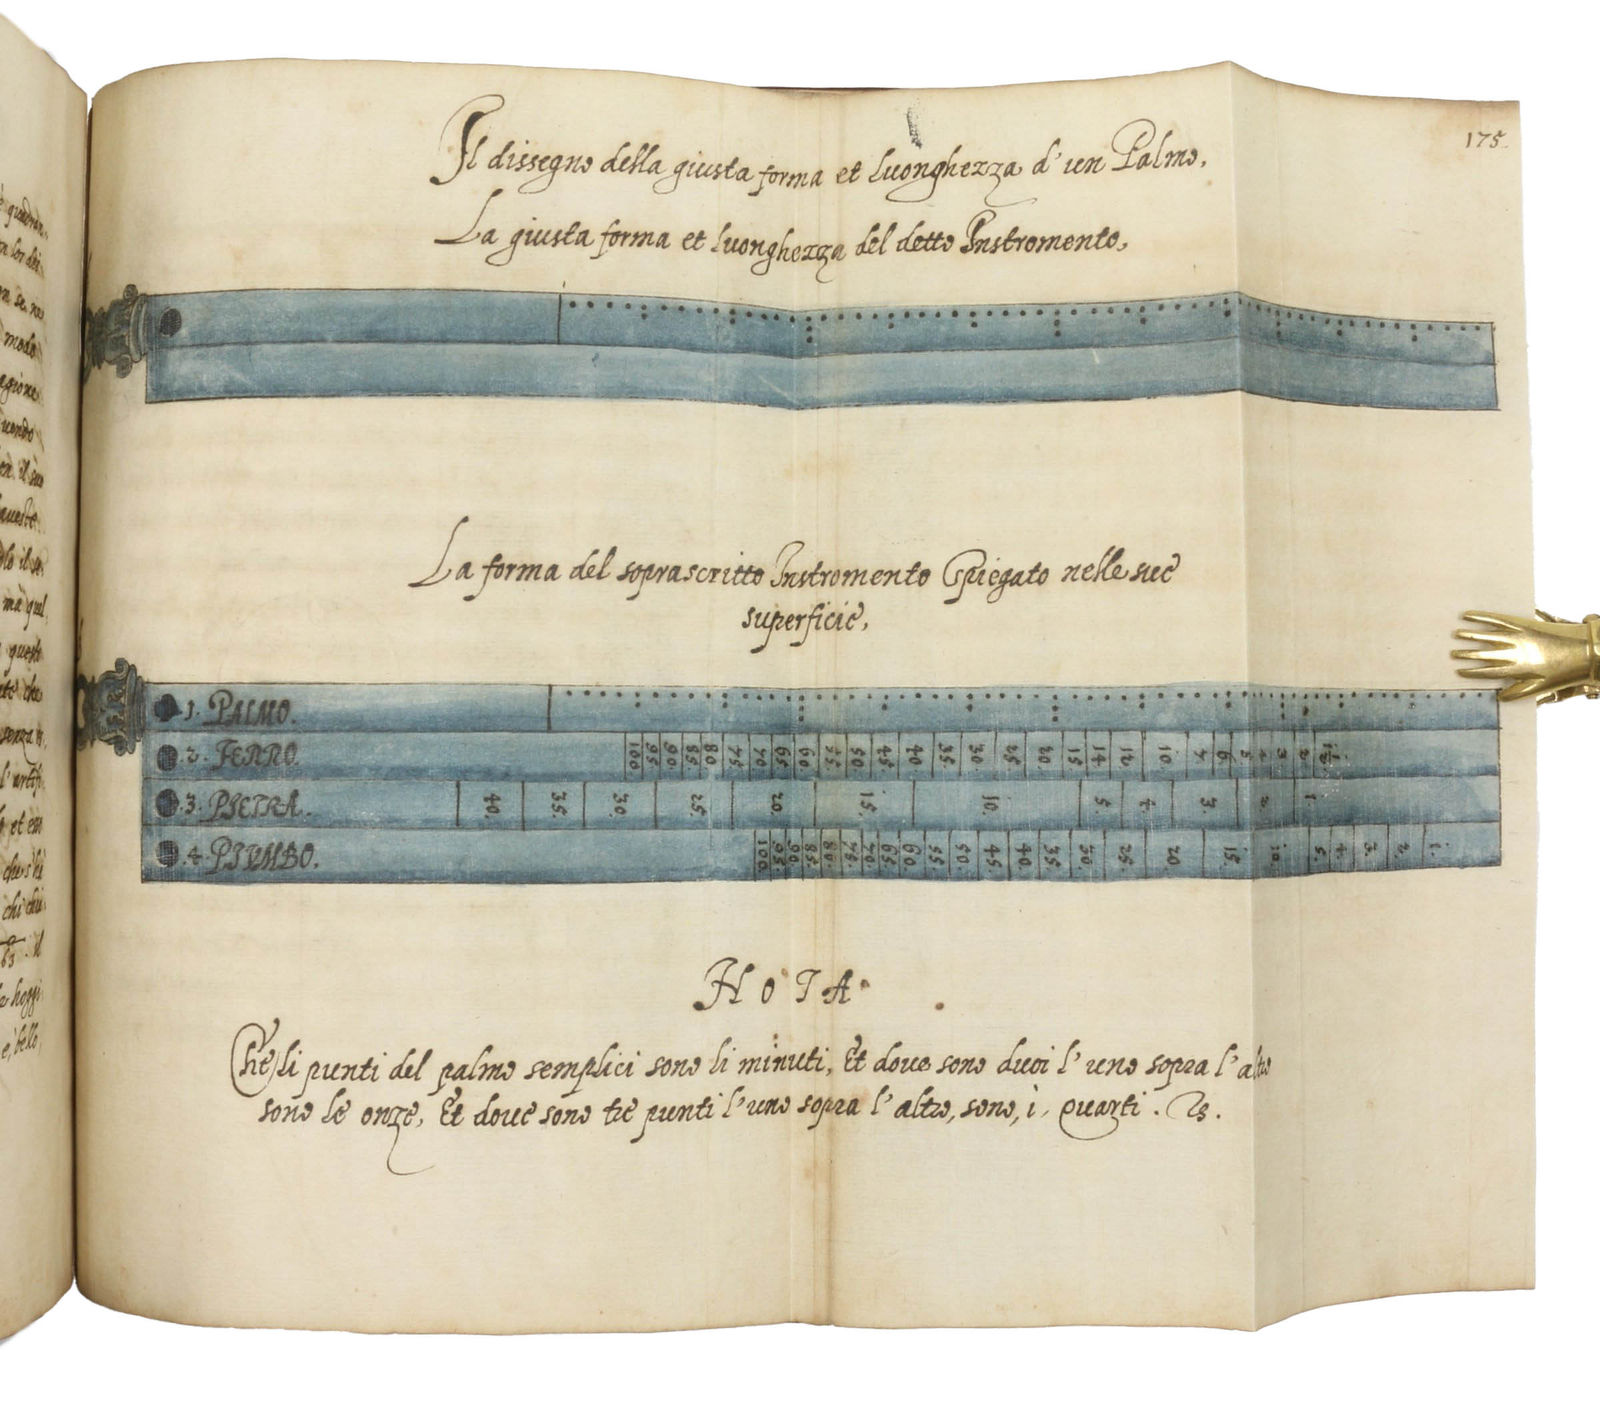 175.
Il dissegno della giusta forma et luonghezza d'un Palmo.
La giusta forma et luonghezza del detto Instromento.
La forma del soprascritto Instromento Spiegato nelle sue
superficie.
.1. PALMO.
.2. FERRO. 100 95. 90. 85. 80 75 70. 65. 60. 55. 50. 45. 40. 35. 30. 25. 20. 15 14 12. 10. 7 6. 5 4 3 2 1½
.3. PIETRA. 40. 35. 30. 25. 20. 15. 10. 5. 4. 3. 2. 1.
.4. PIUMBO. 100. 95. 90. 85. 80. 75. 70. 65. 60. 55. 50. 45. 40. 35. 30. 25. 20. 15. 10. 5. 4. 3. 2. 1.
NOTA
Che li punti del palmo semplici sono li minuti, Et doue sono duoi l'uno sopra l'altro
sono le onze, Et doue sono tre punti l'uno sopra l'altro, sono, i, quarti.
modo
agione
uendo
ma qual
senza
et
chi
il
hoggi
è, bello,